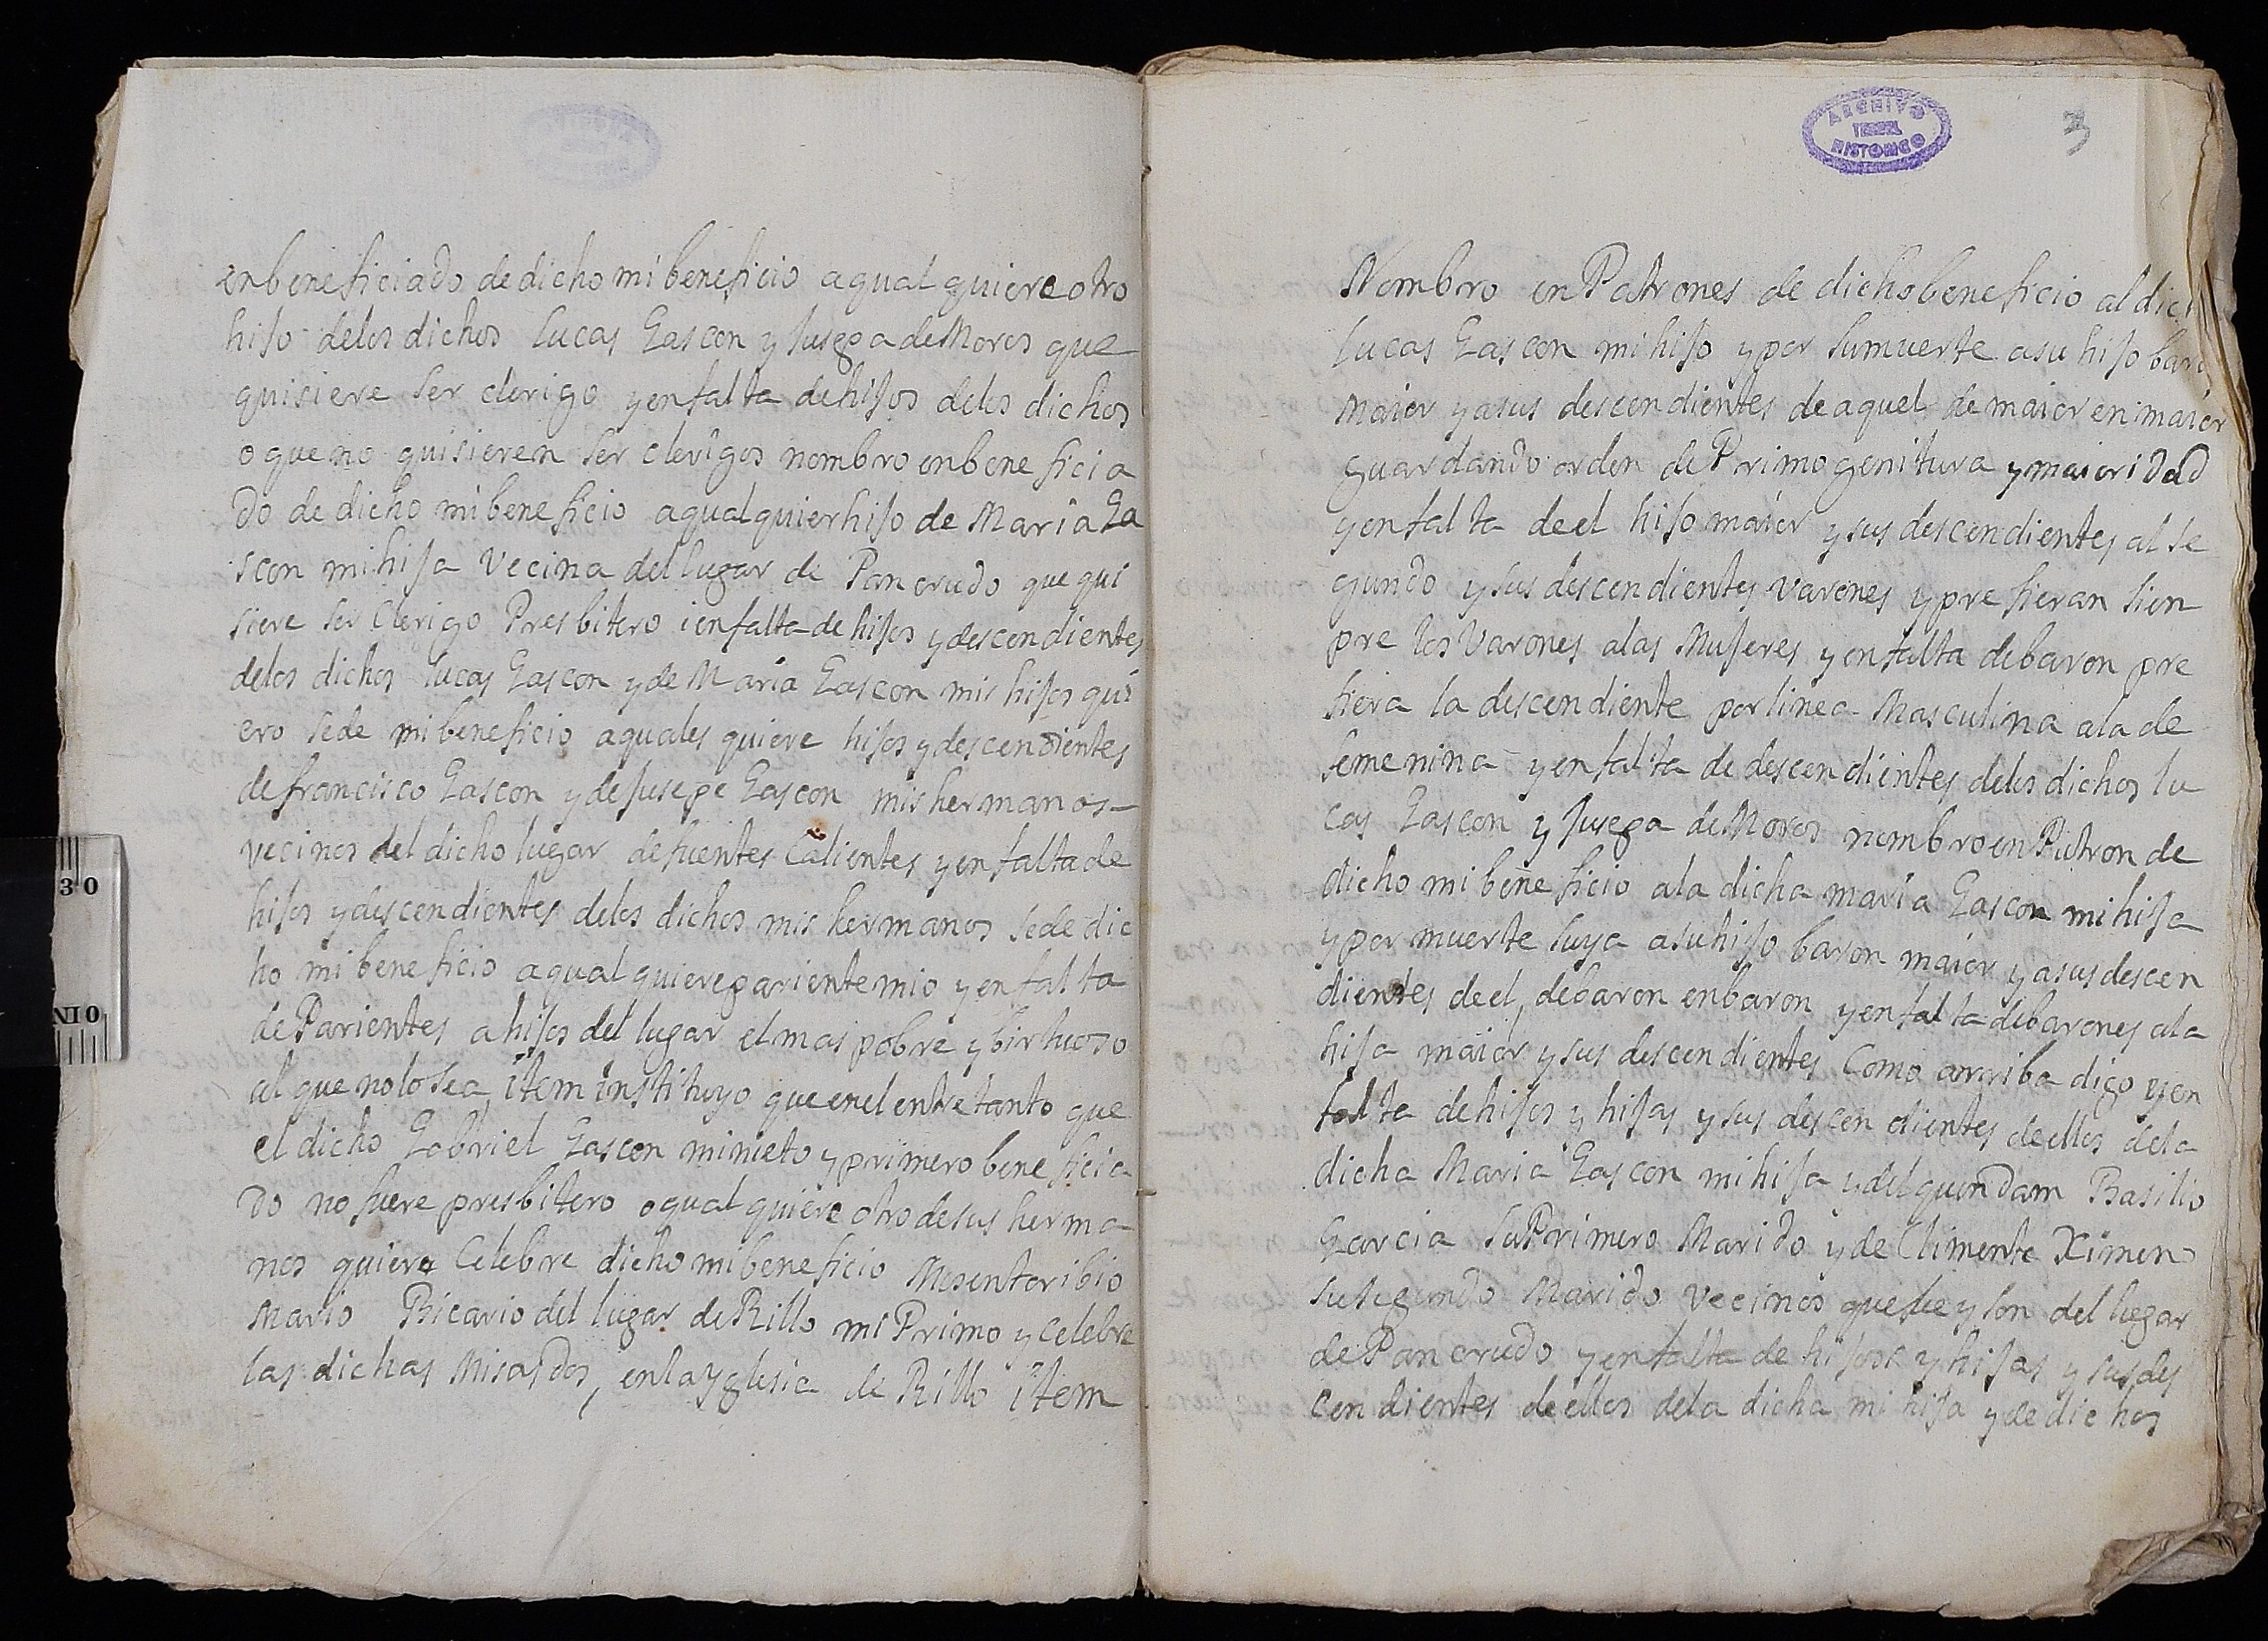 en beneficiado de dicho mi beneficio a qual quiere otro
hijo de los dichos lucas Gascon y Jusepa de Moros que
quisiere ser clerigo y en falta de hijos delos dichos
o que no quisieren ser clerigos nombro en bene ficia
do de dicho mi beneficio a qual quier hijo de Maria Ga
scon mi hija Vecina del lugar de Pancrudo que qui
siere ser Clerigo Presbitero i en falta de hijos y descendientes
delos dichos lucas Gascon y de Maria Gascon mis hijos qui
ero se de mi beneficio a quales quiere hijos y descendientes
de francisco Gascon y de Jusepe Gascon mis hermanos
vecinos del dicho lugar de fuentes Calientes y en falta de
hijos y descendientes delos dichos mis hermanos se de dic
ho mi beneficio a qual quiere pariente mio y en falta
de Parientes a hijos del lugar el mas pobre y birtuoso
al que no lo sea, item instituyo que en el entre tanto que
el dicho Gabriel Gascon mi nieto y primero bene ficia
do no fuere presbitero o qual quiere otro de sus herma
nos quiero Celebre dicho mi beneficio Mosen toribio
Mario Bicario del lugar de Rillo mi Primo y celebre
las dichas Misas dos, en la Yglesia de Rillo item
ARCHIVO
TERUEL
HISTORICO
3
Nombro en Patrones de dicho beneficio al dic
lucas Gascon mi hijo y por su muerte a su hijo baro
Maior y a sus descendientes de aquel de maior en maior
guardando orden de Primogenitura y maioridad
y en falta de el hijo maior y sus descendientes al se
gundo y sus descendientes varones y pre fieran sien
pre los Varones a las Mujeres y en falta de baron pre
fiera la descendiente por linea Masculina a la de
femenina y en falta de descendientes delos dichos lu
cas Gascon y Jusepa de Moros nombro en Patron de
dicho mi bene ficio a la dicha maria Gascon mi hija
y por muerte suya a su hijo baron maior y a sus descen
dientes de el, de baron en baron y en falta de barones a la
hija maior y sus descendientes Como arriba digo y en
falta de hijos y hijas y sus descendientes de ellos de la
dicha Maria Gascon mi hija y del quondam Basilio
Garcia su Primero Marido y de Climente Ximeno
su segundo Marido Vecinos que fue y son del lugar
de Pancrudo y en falta de hijos y hijas y sus des
cendientes de ellos de la dicha mi hija y de dichos